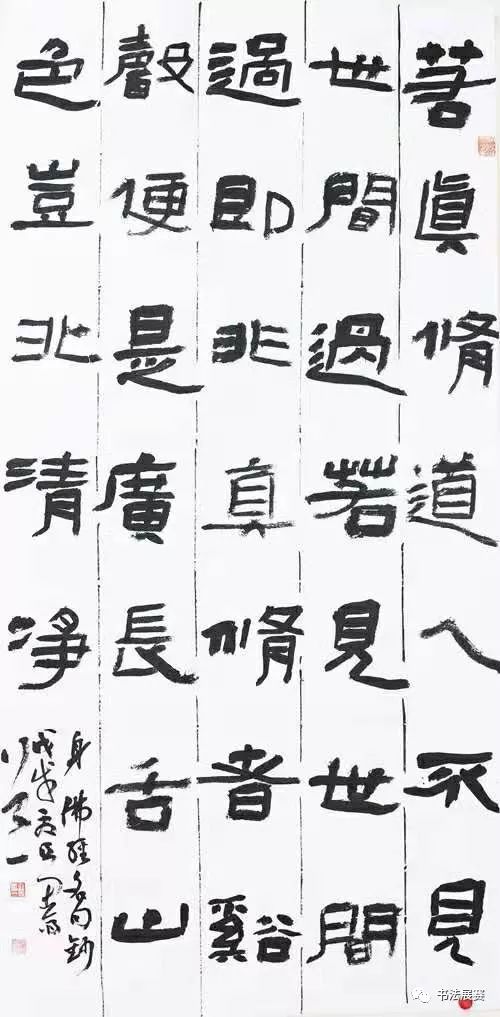 若眞脩道人不見
世間過若見世間
過即非真脩者谿
聲便是廣長舌山
色豈非清淨
身 佛經名句鈔
戊戌
书法展赛